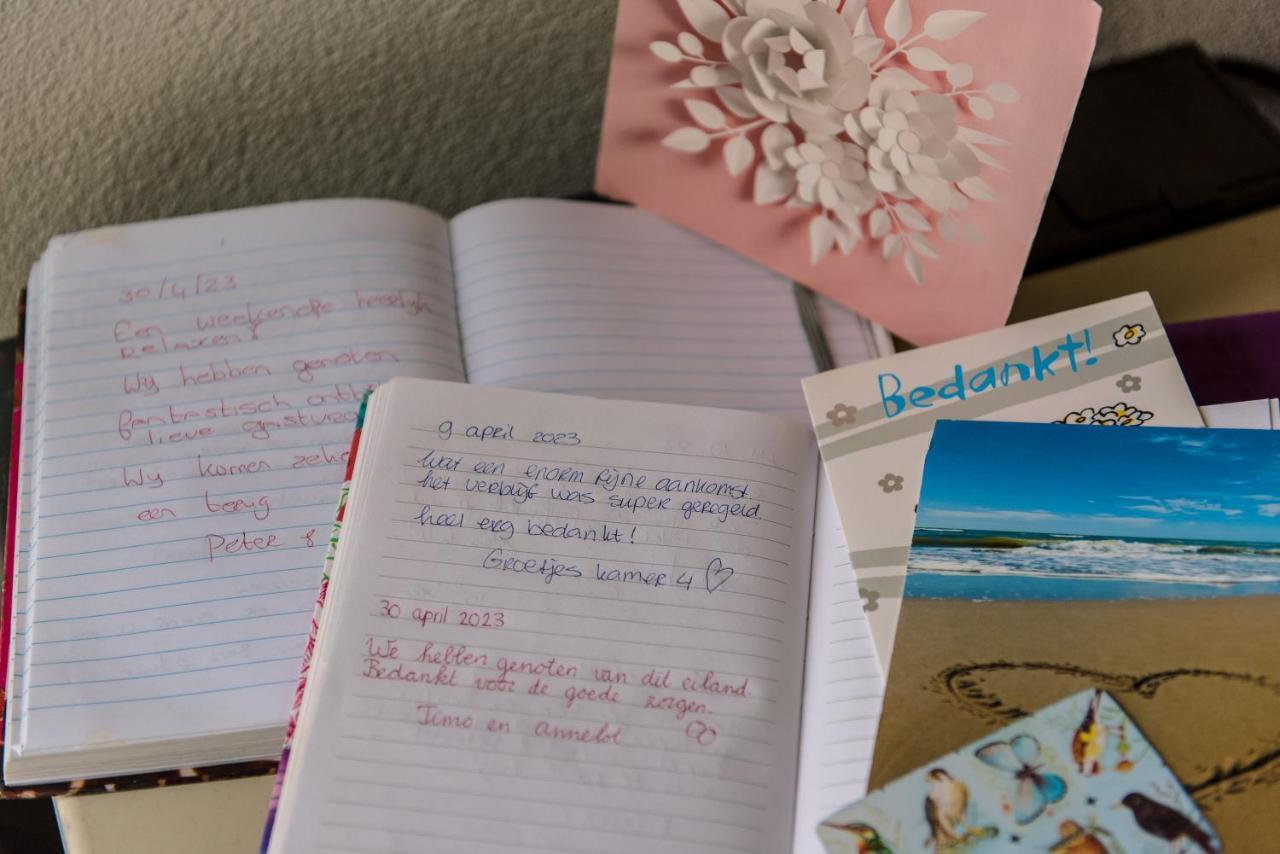 30/4/23
Een weekendje heerlijk
relaxen!
Wij hebben genoten
fantastisch ontb
lieve gastvro
Wij komen zeke
een terug
Peter &
9 april 2023
wat een enorm fijne aankomst.
het verblijf was super geregeld.
heel erg bedankt!
Groetjes kamer 4
30 april 2023
We hebben genoten van dit eiland.
Bedankt voor de goede zorgen.
Timo en Annelot
Bedankt!